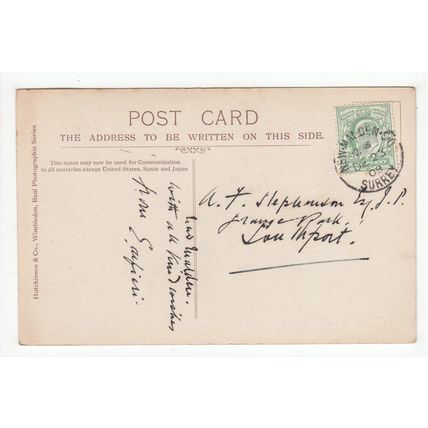 POST CARD
THE ADDRESS TO BE WRITTEN ON THIS SIDE.
This space may now be used for Communication
to all countries except United States, Spain and Japan
Hutchinson & Co., Wimbledon, Real Photographic Series
New Malden.
with all kind wishes
from
NEW MALDEN S.O.
SURREY
A. F. Stephenson Esq J.P.
Grange Park
Southport.